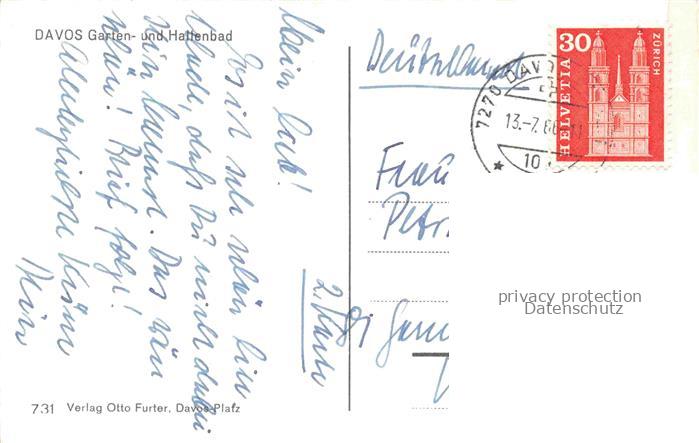 DAVOS Garten- und Hallenbad
Mein Lieb!
Es ist sehr schön hier,
schade, daß Du nicht dabei
sein kannst. Das wäre
schön! Brief folgt!
Allerherzlichste Küsse
Dein
2. Karte
731 Verlag Otto Furter, Davos-Platz
Deutschland
HELVETIA 30
ZÜRICH
7270 DAVO
13.-7.66
10
Frau
Petr
privacy protection
Datenschutz